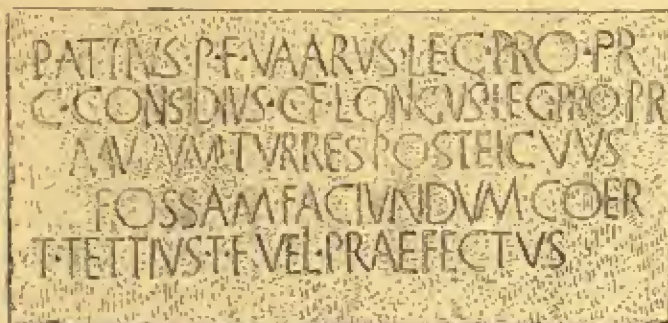 P·ATTIVS·P·F·VAARVS·LEG·PRO·PR
C·CONSIDIVS·C·F·LONGVS·LEG·PRO·PR
MVRVM·TVRRES POSTEICVVS
FOSSAM·FACIVNDVM·COER
T·TETTIVS·T·F·VEL·PRAEFECTVS